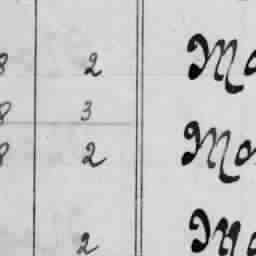 8 2 Mo
8 3
8 2 Mo
2 M